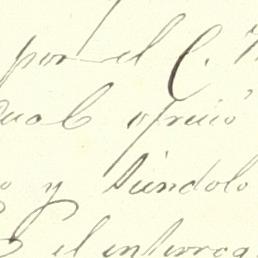 por el C.
cual ofreció
o y siéndolo
el interroga